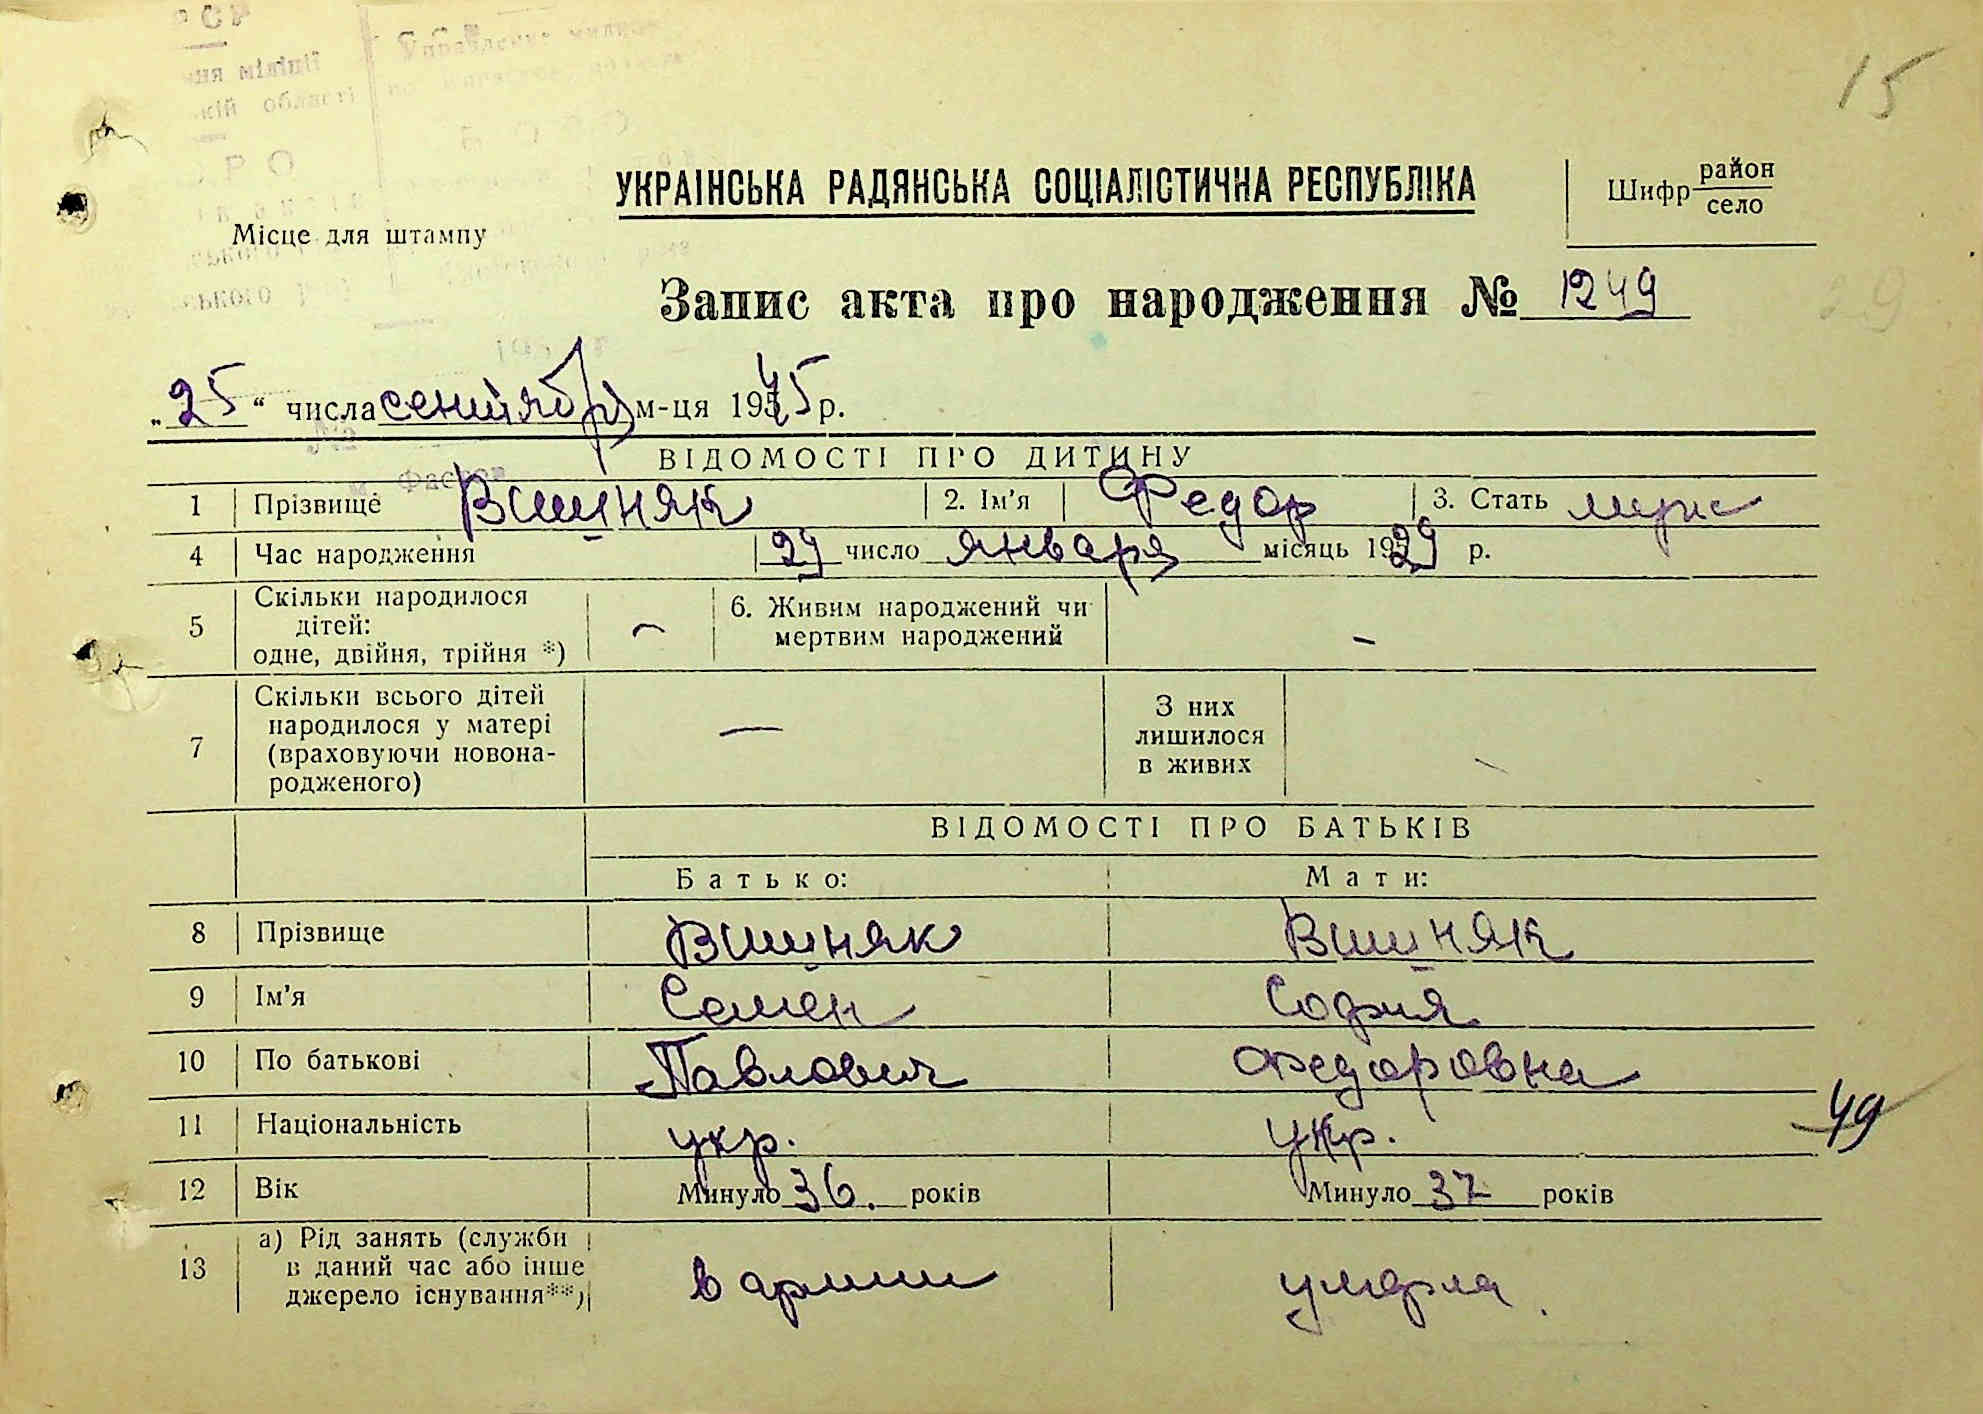 15
УКРАЇНСЬКА РАДЯНСЬКА СОЦІАЛІСТИЧНА РЕСПУБЛІКА
Шифр район село
Місце для штампу
Запис акта про народження № 1249
„25“ числа сентября м-ця 1945 р.
м. Фастов
ВІДОМОСТІ ПРО ДИТИНУ
1 Прізвище Вишняк 2. Ім'я Федор 3. Стать муж
4 Час народження 29 число января місяць 1929 р.
5 Скільки народилося дітей: одне, двійня, трійня *) — 6. Живим народжений чи мертвим народжений —
7 Скільки всього дітей народилося у матері (враховуючи новонародженого) — З них лишилося в живих —
ВІДОМОСТІ ПРО БАТЬКІВ
Батько: Мати:
8 Прізвище Вишняк Вишняк
9 Ім'я Семен София
10 По батькові Павлович Федоровна
11 Національність укр. укр.
49
12 Вік Минуло 36. років Минуло 37 років
13 а) Рід занять (служби в даний час або інше джерело існування**) в армии умерла.